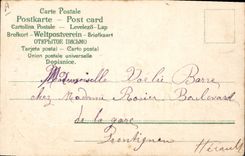 Carte Postale
Postkarte - Post card
Cartolina Postale - Levelezö-Lap
Brefkort - Weltpostverein - Briefkaart
ОТКРЫТОЕ ПИСЬМО
Tarjeta postal - Carta postal
Union postale universelle
Dopisnice.
Mademoiselle Barre
chez Madame Rosier Boulevard
de la gare
Frontignan
Hérault